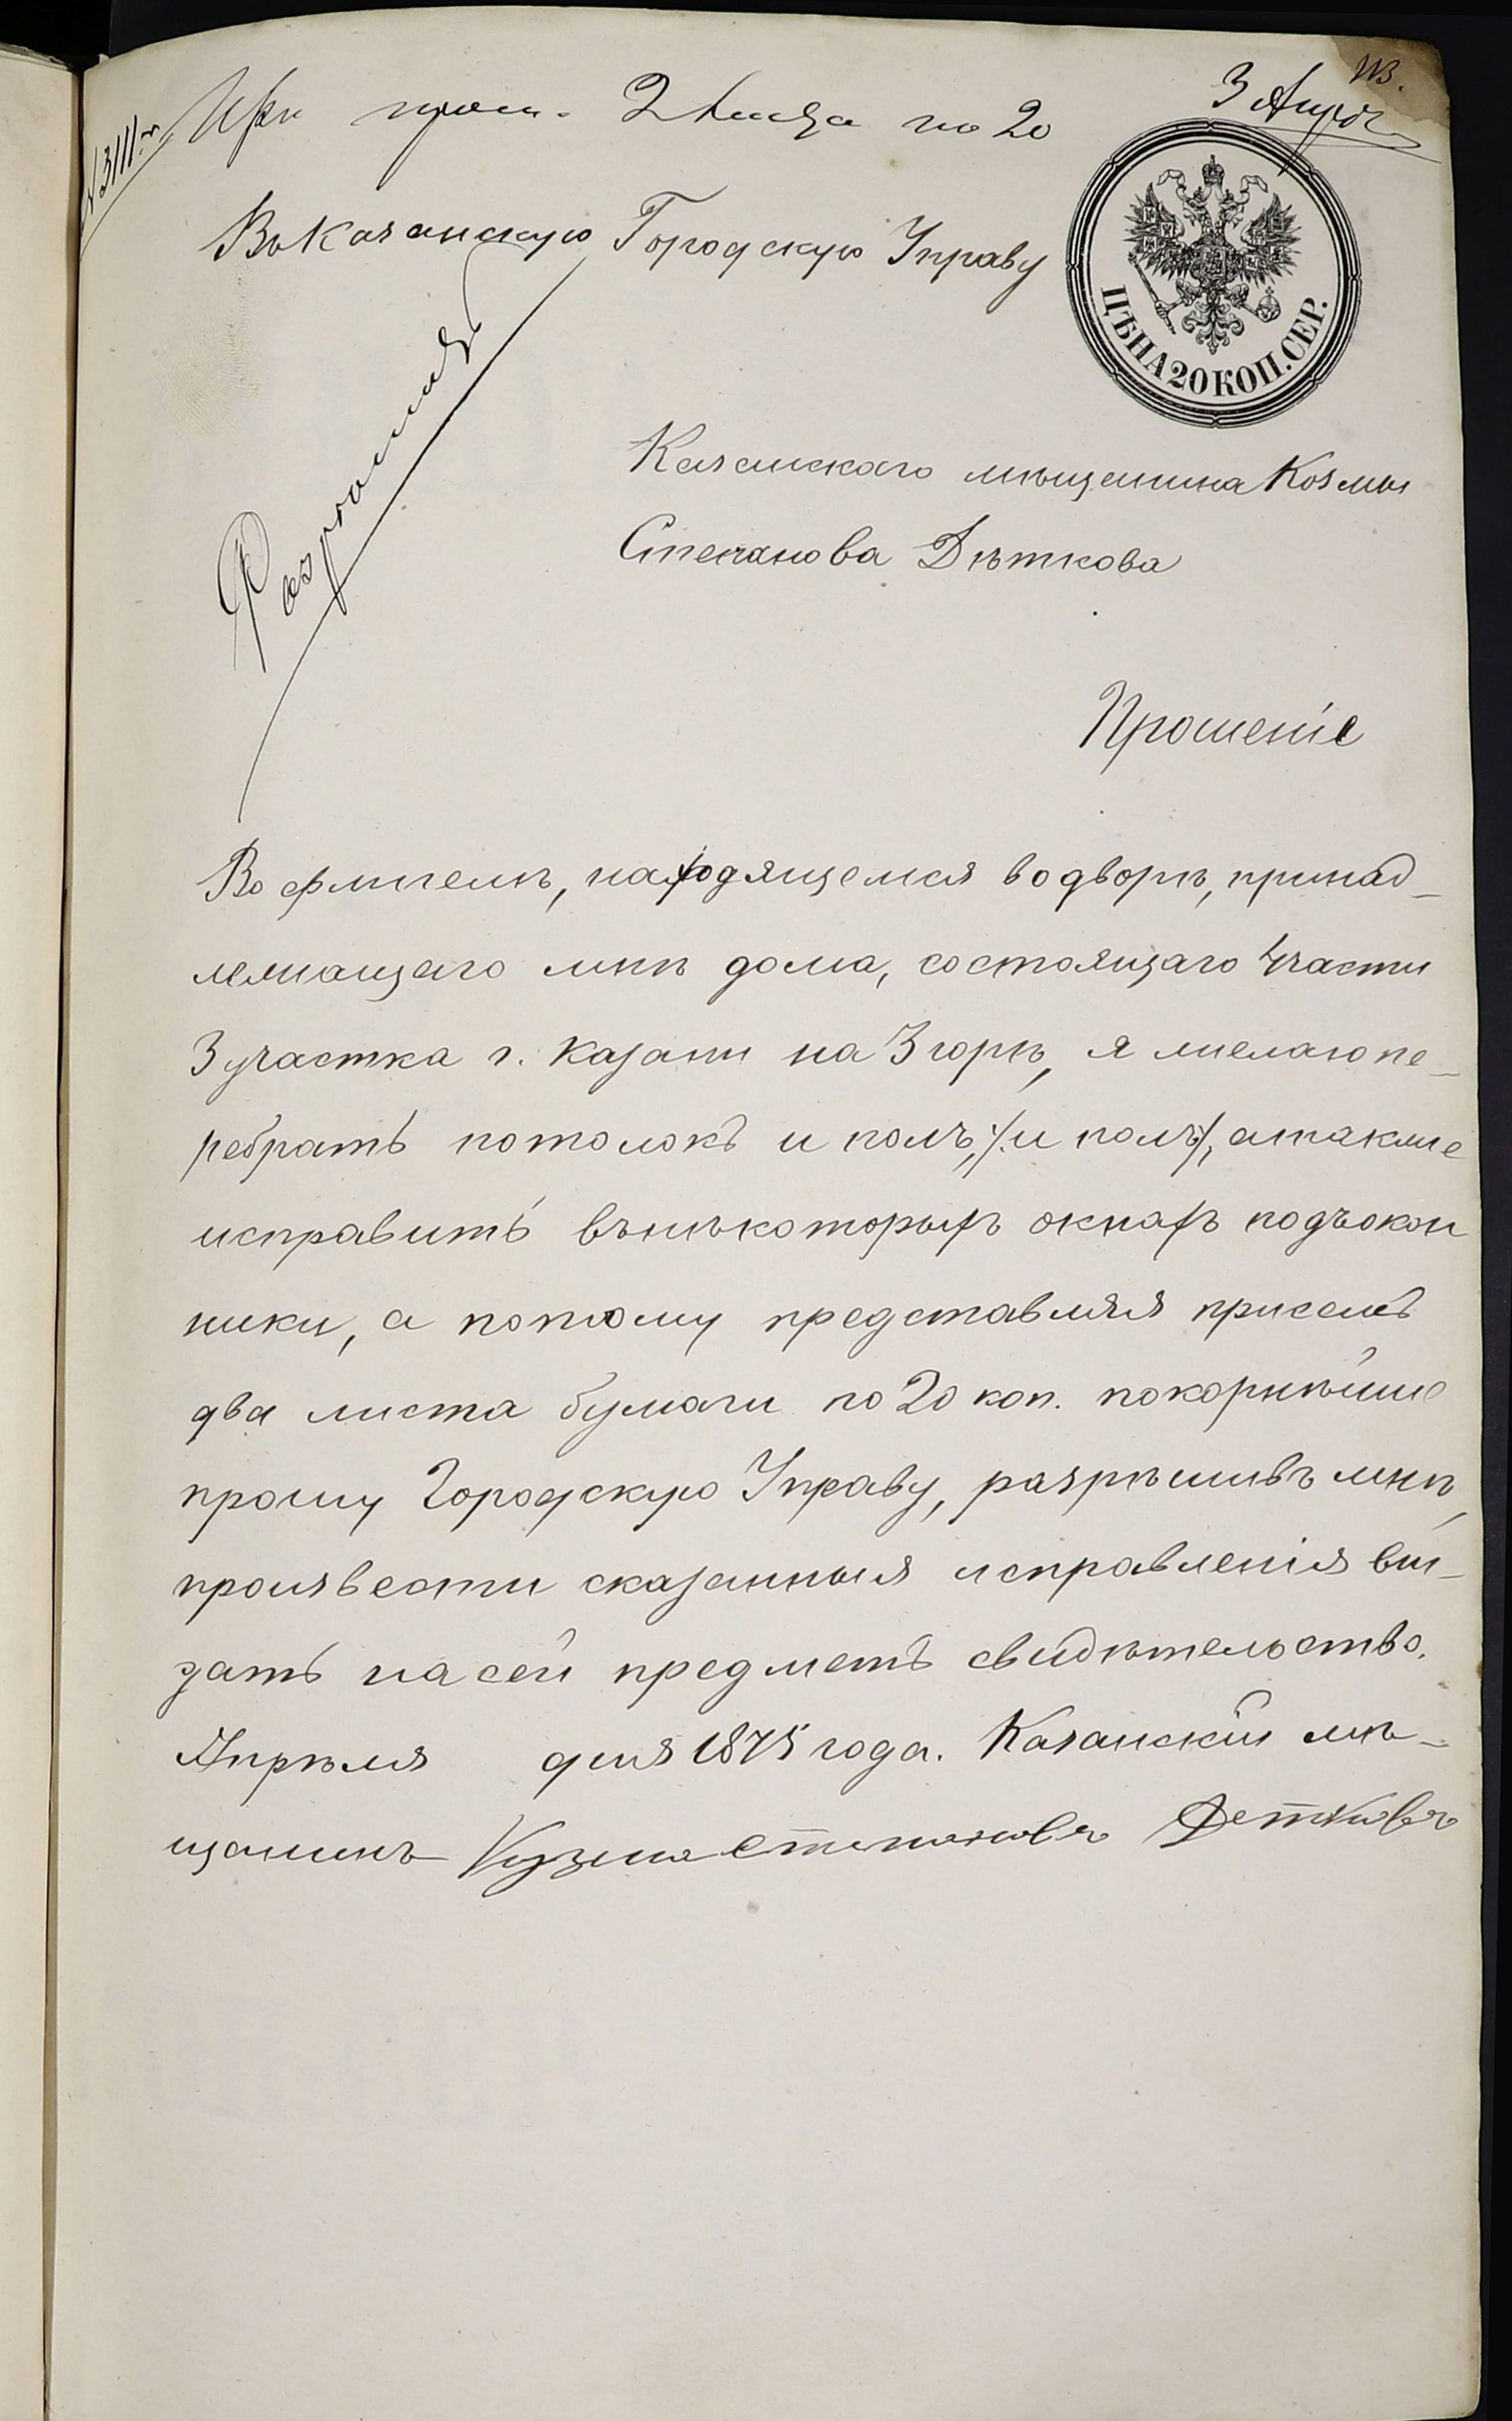 113.
3 Апрѣ
№ 3111
При прош. 2 листа по 20
Въ Казанскую Городскую Управу
ЦѢНА 20 КОП. СЕР.
Разрѣшить
Казанскаго мѣщанина Козмы
Степанова Дѣткова
Прошеніе
Во флигелѣ, находящемся во дворѣ, принад-
лежащаго мнѣ дома, состоящаго 4 части
3 участка г. Казани на 3 горѣ, я желаю пе-
ребрать потолокъ и полъ, /: и полъ :/, а также
исправить въ нѣкоторыхъ окнахъ подъокон
ники, а потому представляя при семъ
два листа бумаги по 20 коп. покорнѣйше
прошу Городскую Управу, разрѣшивъ мнѣ,
произвести сказанныя исправленія вы-
дать на сей предметъ свидѣтельство.
Апрѣля дня 1875 года. Казанскій мѣ-
щанинъ Кузма Степановъ Детковъ